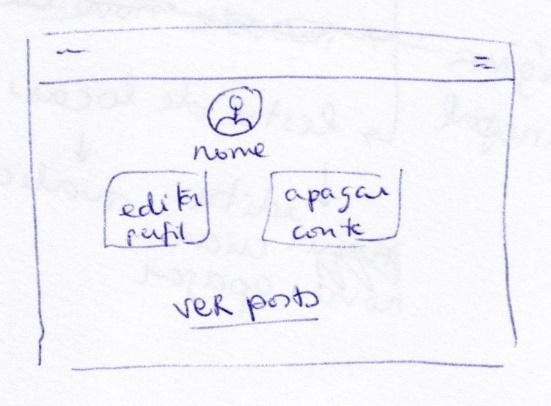 nome
editar
perfil
apagar
conta
ver posts